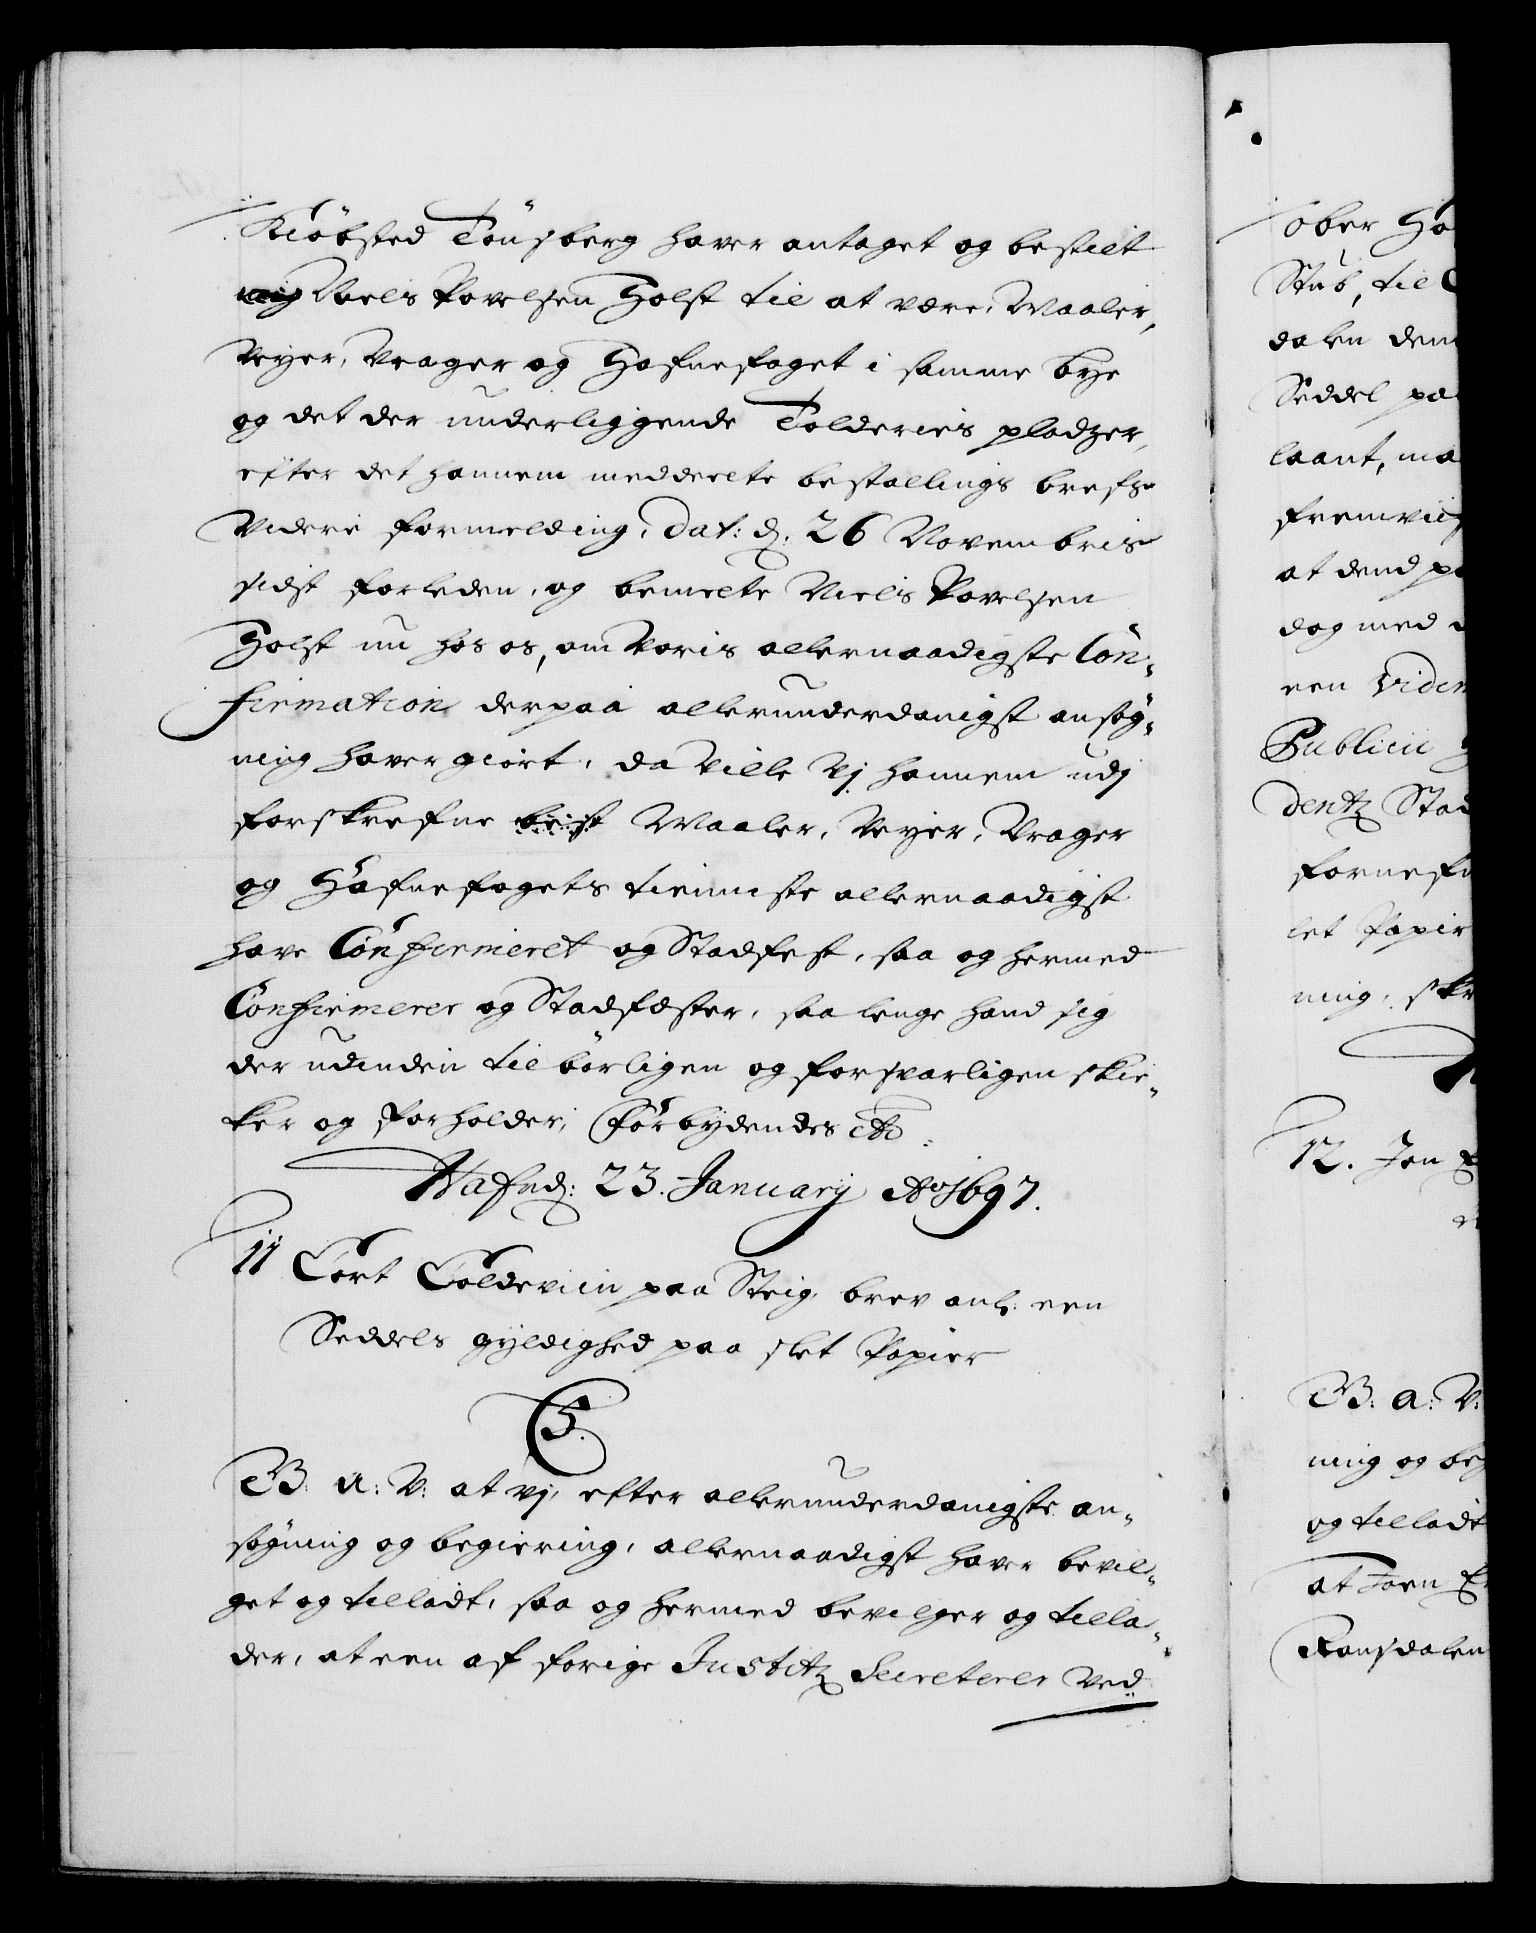 Kiøbsted Tønsberg haver antaget og bestilt
Niels Povelsen Holst til at være, Maaler,
Vejer, Vrager og Hafnefoget i samme bye
og det der underliggende Tolderies pladzer,
efter det hannem meddeelte bestallings brefs
videre formelding, Dat: d. 26 Novembris
sidst forleden, og bemelte Niels Povelsen
Holst nu hos os, om Voris allernaadigste Con-
firmation derpaa allerunderdanigst ansøg-
ning haver giort, da ville Vj hannem udj
forskrefne best Maaler, Vejer, Vrager
og Hafnefogets tienniste allernaadigst
have Confirmeret og Stadfest, saa og hermed
Confirmerer og Stadfæster, saa lenge hand sig
der udinden tilbørligen og forsvarligen skic-
ker og forholder, Forbydendes etc.
Hafnd: 23. January Ao 1697.
11 Cort Coldeviin paa Steig, brev anl: een
Seddels gyldighed paa slet Papier
C5.
G. A: V: at vj, efter allerunderdanigste an-
søgning og begiering, allernaadigst haver bevil-
get og tilladt, saa og hermed bevilger og tilla-
der, at een af forige Justitz Secreterer ved
ober Ho
Stub, til
dalen den
Seddel pa
laant, ma
fremviis
at dend p
dog med
een Vidim
Publicii
dentz Stad
fornefn
let Papir
ning, skr
12. Jon
G: a: V:
ning og beg
og tilladt
at Joen
Romsdalen